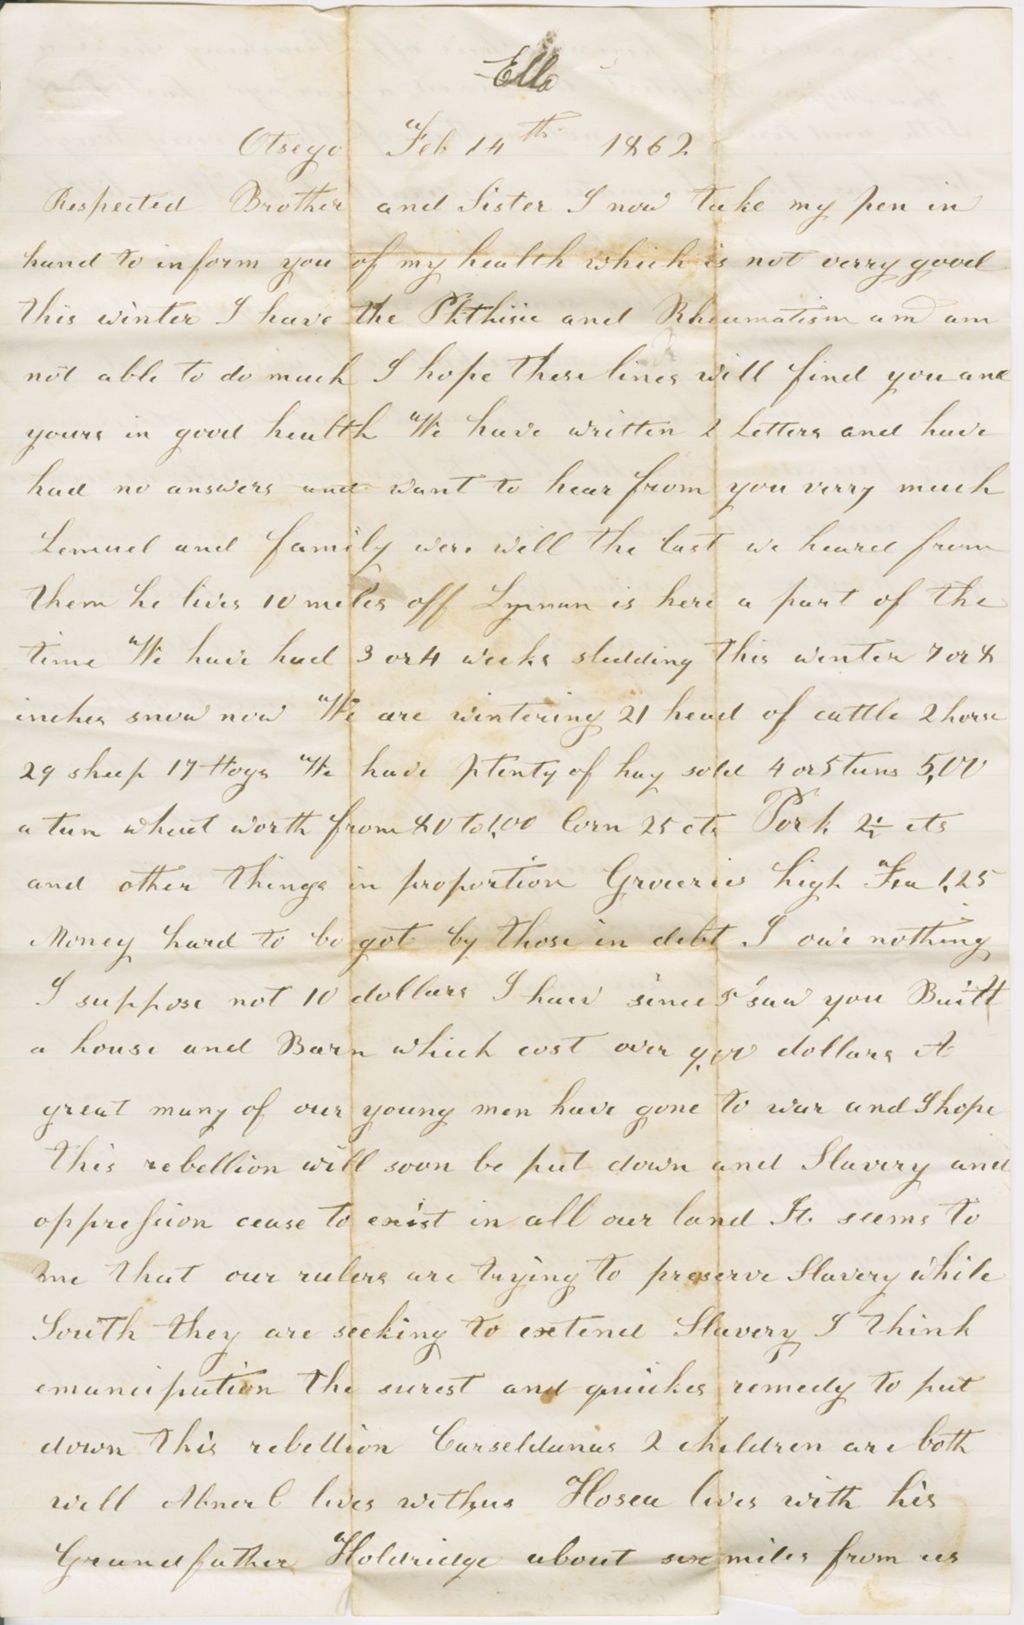 Ella
Otsego Feb 14th 1862
Respected Brother and Sister I now take my pen in
hand to inform you of my health which is not verry good
this winter I have the Phthisic and Rheumatism and am
not able to do much I hope these lines will find you and
yours in good health We have written 2 Letters and have
had no answers and want to hear from you verry much
Lemuel and family were well the last we heard from
them he lives 10 miles off Lyman is here a part of the
time We have had 3 or 4 weeks sledding this winter 7 or 8
inches snow now We are wintering 21 head of cattle 2 horse
29 sheep 17 Hogs We have plenty of hay sold 4 or 5 tuns 5,00
a tun wheat worth from 80 to 1,00 Corn 25 cts Pork 2½ cts
and other things in proportion Groceries high Tea 1,25
Money hard to be got by those in debt I owe nothing
I suppose not 10 dollars I have since I saw you Built
a house and Barn which cost over dollars A
great many of our young men have gone to war and I hope
this rebellion will soon be put down and Slavery and
oppression cease to exist in all our land It seems to
me that our rulers are trying to preserve Slavery while
South they are seeking to extend Slavery I think
emancipation the surest and quickes remedy to put
down this rebellion 2 children are both
well Abner C lives with us Hosea lives with his
Grandfather Holdridge about six miles from us